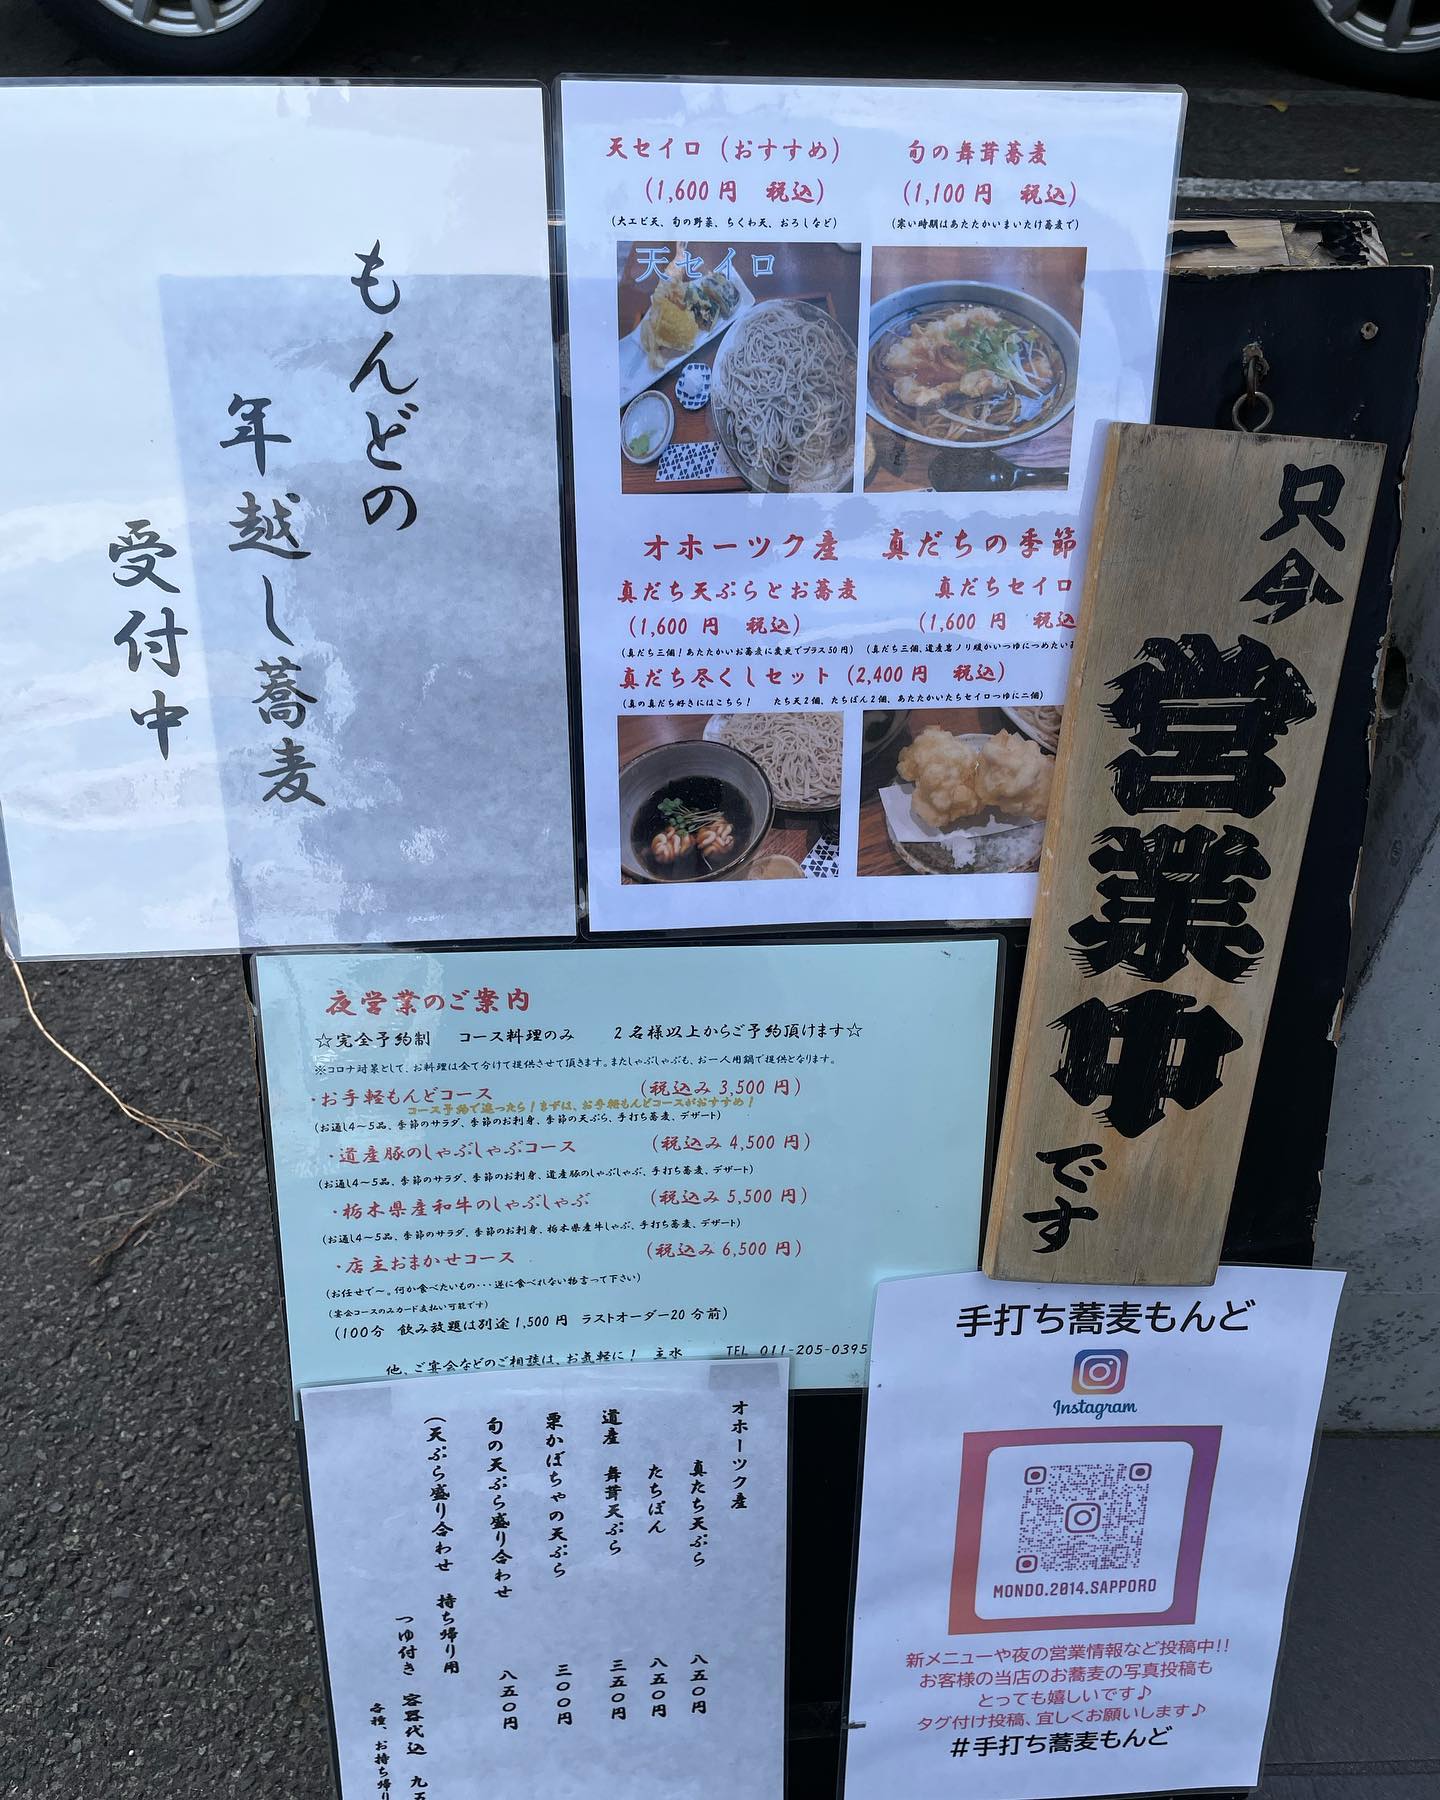 もんどの
年越し蕎麦
受付中
天セイロ（おすすめ）
（1,600円　税込）
（大エビ天、旬の野菜、ちくわ天、おろしなど）
天セイロ
旬の舞茸蕎麦
（1,100円　税込）
（寒い時期はあたたかいまいたけ蕎麦で）
オホーツク産　真だちの季節
真だち天ぷらとお蕎麦
（1,600円　税込）
（真だち三個！あたたかいお蕎麦に変更でプラス50円）
真だちセイロ
（1,600円　税込
（真だち三個、道産岩ノリ暖かいつゆにつめたい
真だち尽くしセット（2,400円　税込）
（真の真だち好きにはこちら！　たち天2個、たちぽん2個、あたたかいたちセイロつゆに二個）
只今
営業中
です
夜営業のご案内
☆完全予約制　コース料理のみ　2名様以上からご予約頂けます☆
※コロナ対策として、お料理は全て分けて提供させて頂きます。またしゃぶしゃぶも、お一人用鍋で提供となります。
・お手軽もんどコース　（税込み3,500円）
コース予約で迷ったら！まずは、お手軽もんどコースがおすすめ！
（お通し4～5品、季節のサラダ、季節のお刺身、季節の天ぷら、手打ち蕎麦、デザート）
・道産豚のしゃぶしゃぶコース　（税込み4,500円）
（お通し4～5品、季節のサラダ、季節のお刺身、道産豚のしゃぶしゃぶ、手打ち蕎麦、デザート）
・栃木県産和牛のしゃぶしゃぶ　（税込み5,500円）
（お通し4～5品、季節のサラダ、季節のお刺身、栃木県産牛しゃぶ、手打ち蕎麦、デザート）
・店主おまかせコース　（税込み6,500円）
（お任せで～。何か食べたいもの・・・逆に食べれない物言って下さい）
（宴会コースのみカード支払い可能です）
（100分　飲み放題は別途1,500円　ラストオーダー20分前）
他、ご宴会などのご相談は、お気軽に！　主水　TEL 011-205-0395
オホーツク産
真たち天ぷら　八五〇円
たちぽん　八五〇円
道産　舞茸天ぷら　三五〇円
栗かぼちゃの天ぷら　三〇〇円
旬の天ぷら盛り合わせ　八五〇円
（天ぷら盛り合わせ　持ち帰り用
つゆ付き　容器代込　九五
各種、お持ち帰り
手打ち蕎麦もんど
Instagram
MONDO.2014.SAPPORO
新メニューや夜の営業情報など投稿中!!
お客様の当店のお蕎麦の写真投稿も
とっても嬉しいです♪
タグ付け投稿、宜しくお願いします♪
#手打ち蕎麦もんど